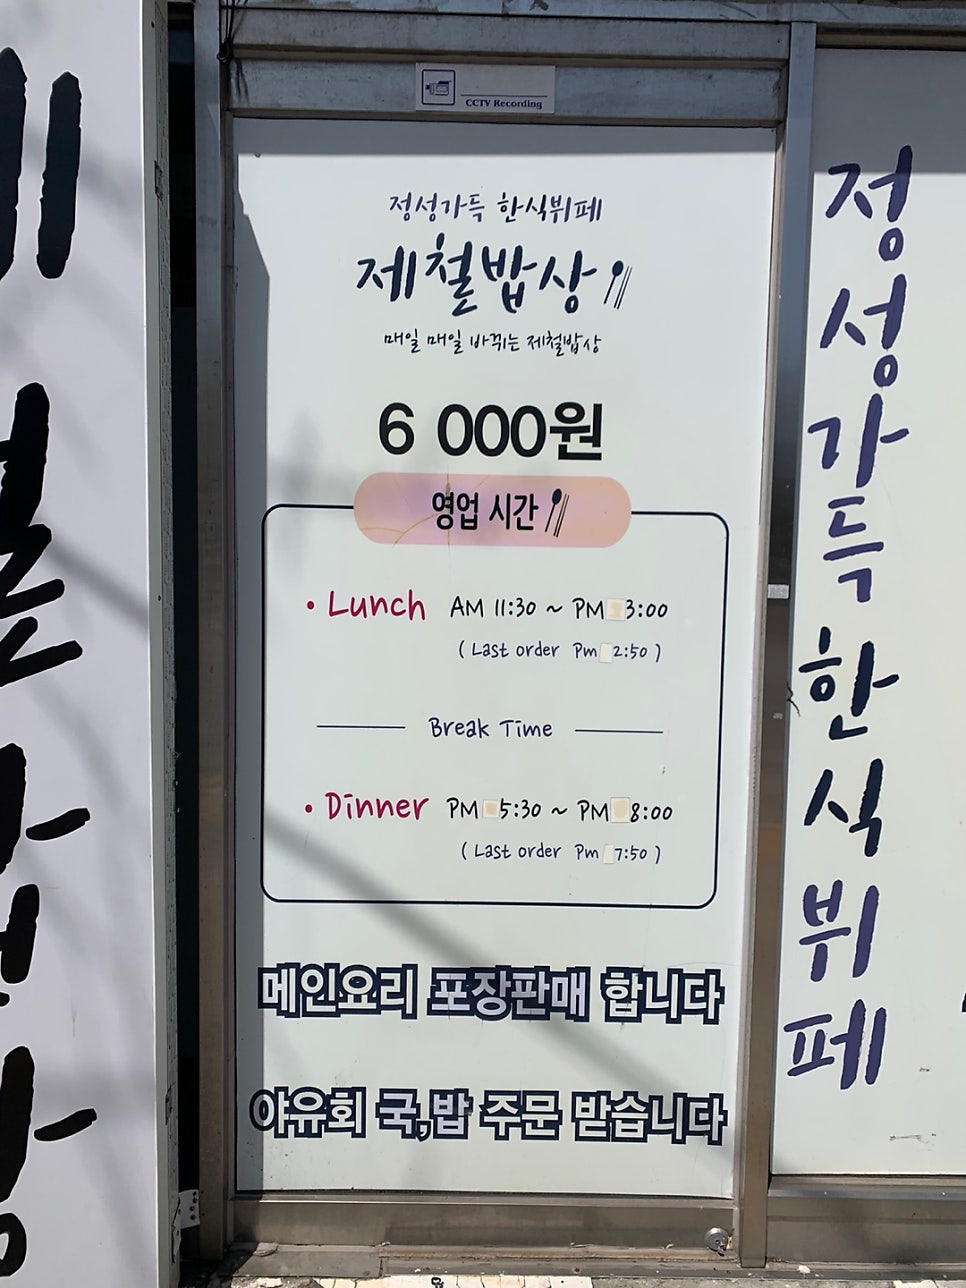 CCTV Recording
정성가득 한식뷔페
제철밥상
매일 매일 바뀌는 제철밥상
6 000원
영업 시간
• Lunch AM 11:30 ~ PM 3:00
( Last order Pm 2:50 )
Break Time
• Dinner PM 5:30 ~ PM 8:00
( Last order Pm 7:50 )
메인요리 포장판매 합니다
야유회 국,밥 주문 받습니다
정성가득한식뷔페